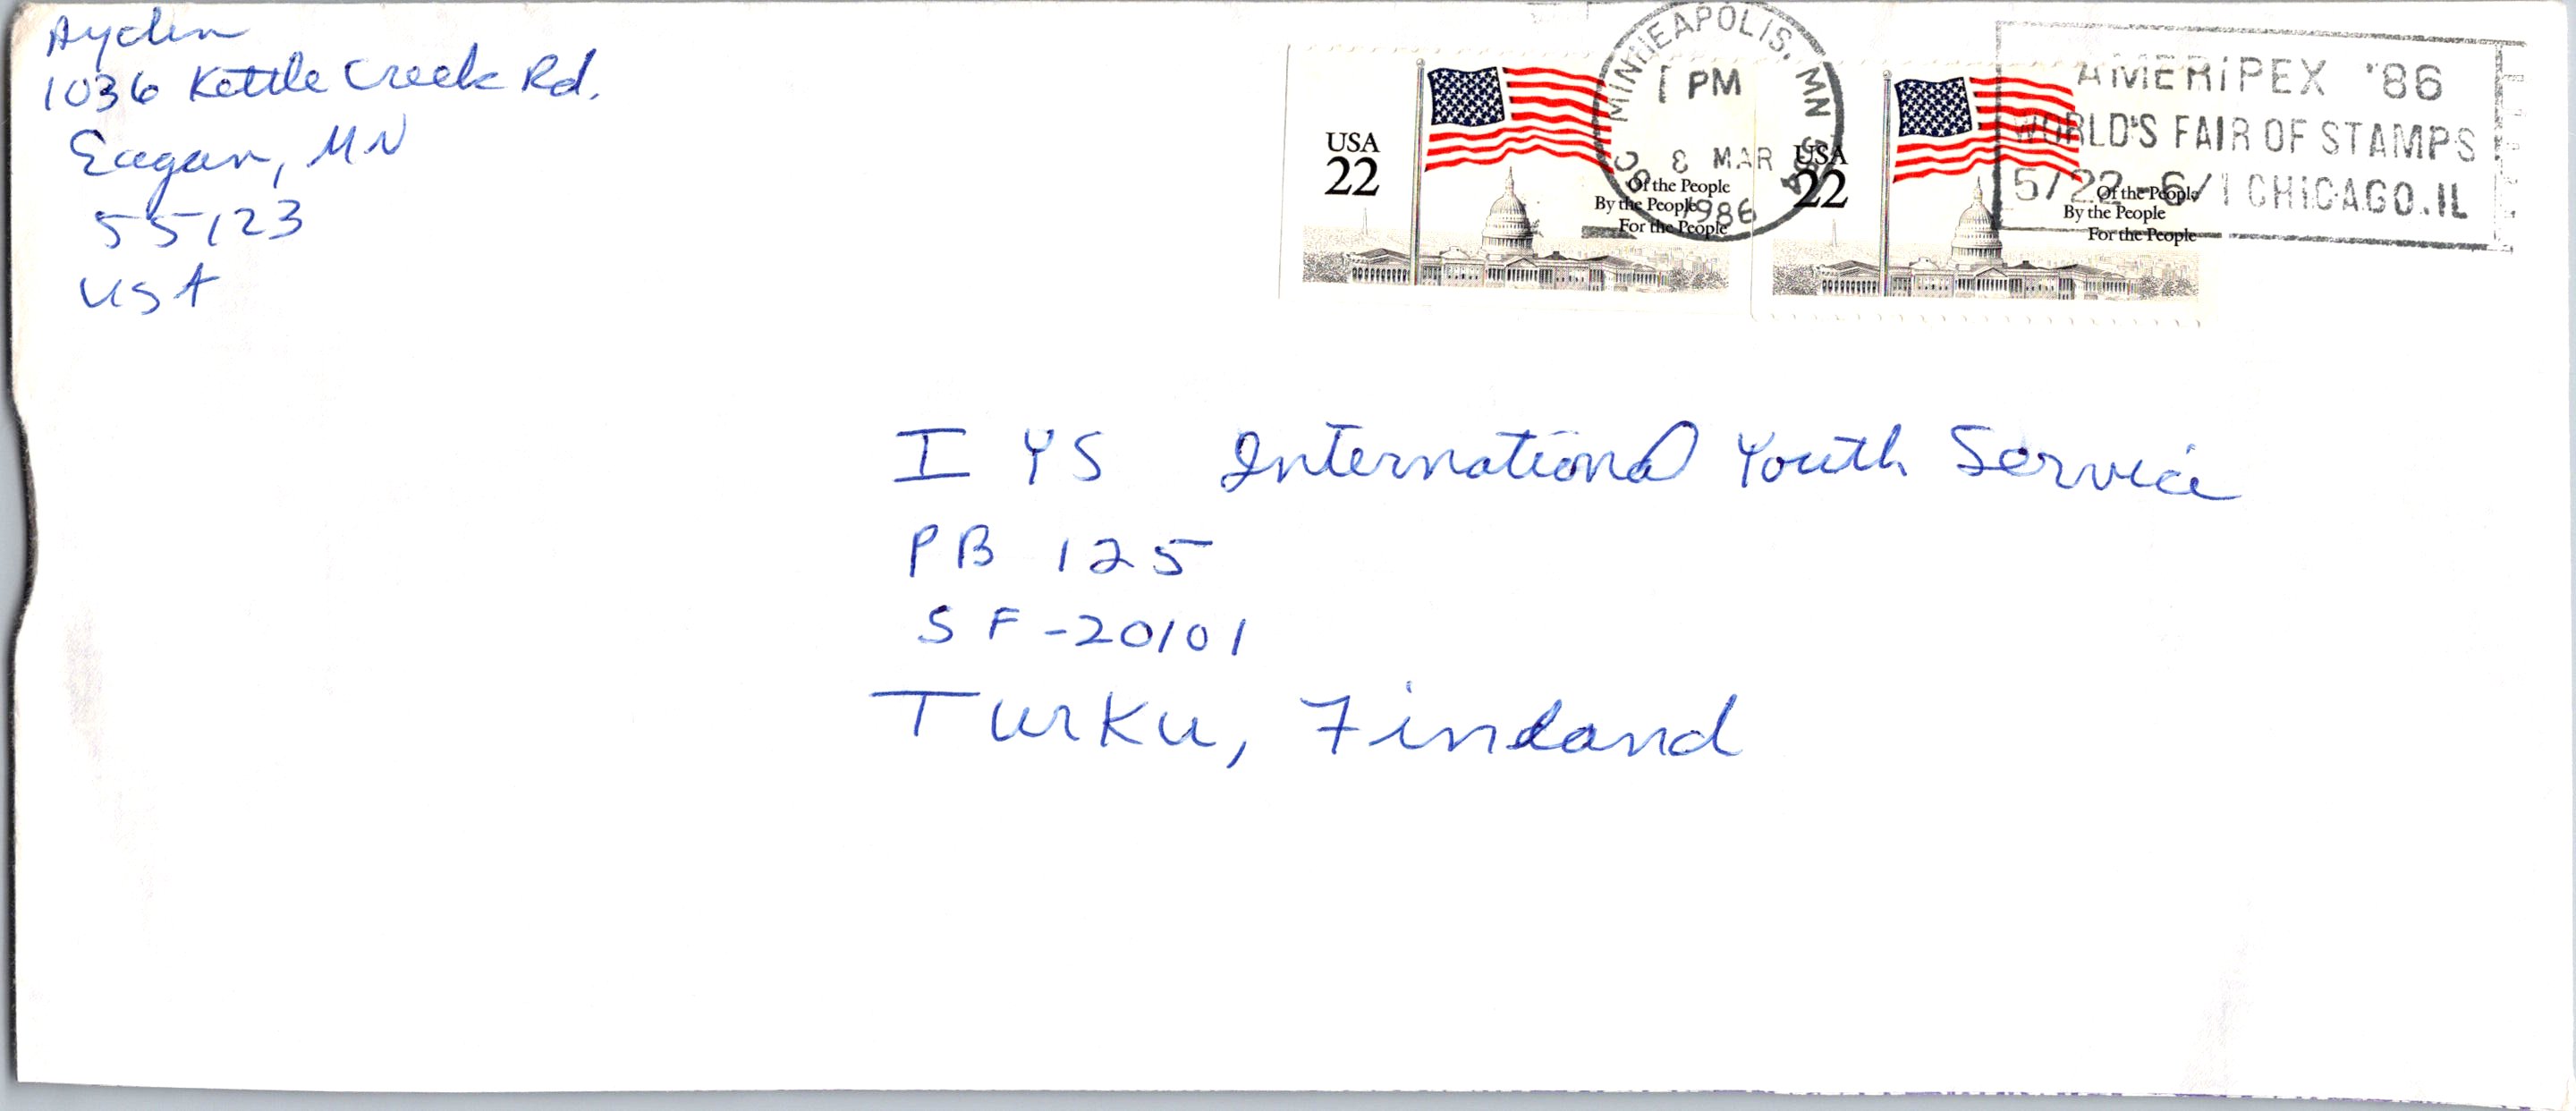 Ayden
1036 Kettle Creek Rd.
Eagan, MN
55123
USA
USA
22
Of the People
By the People
For the People
MINNEAPOLIS, MN
PM
8 MAR
1986
USA
22
Of the People
By the People
For the People
AMERIPEX '86
WORLD'S FAIR OF STAMPS
5/22-6/1 CHICAGO.IL
I YS International Youth Service
PB 125
SF-20101
Turku, Finland